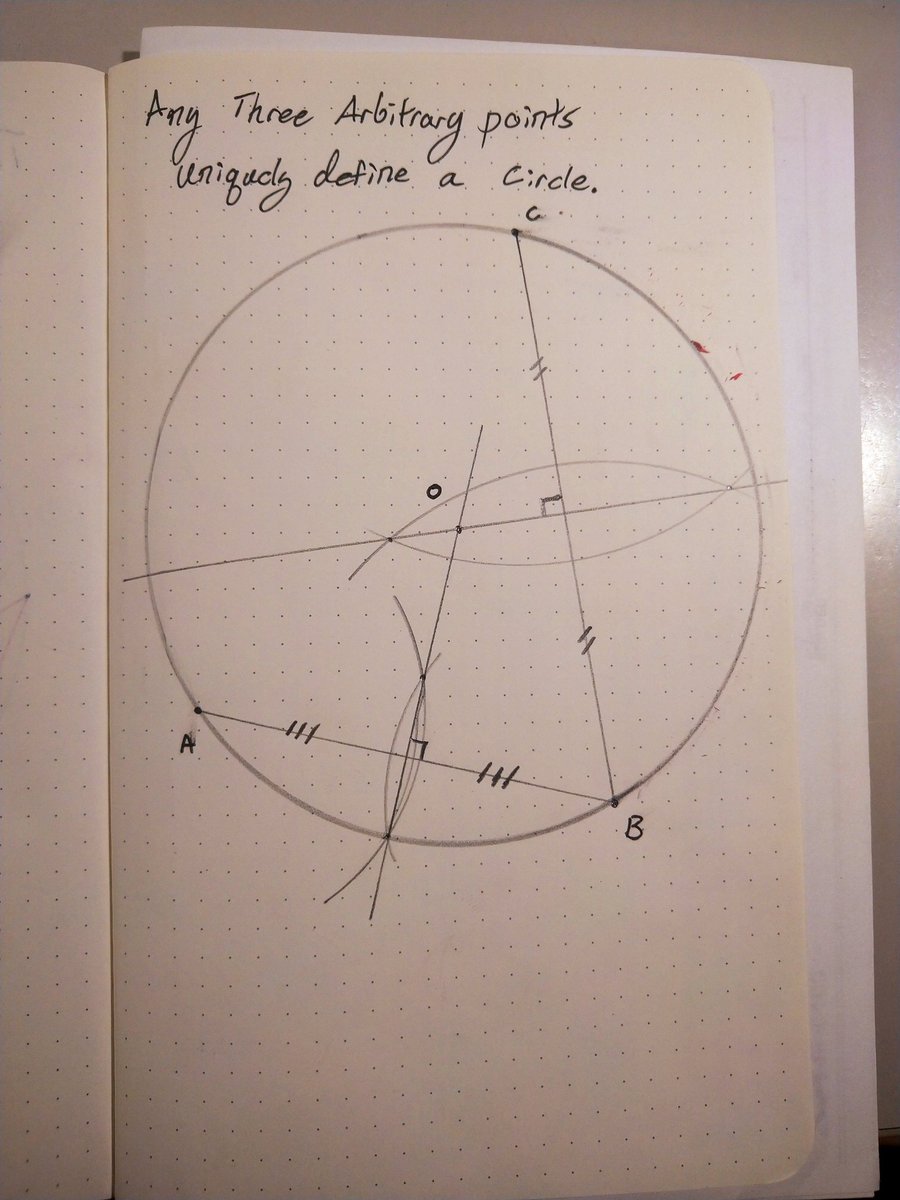 Any Three Arbitrary points
uniquely define a Circle.
C
O
A
B